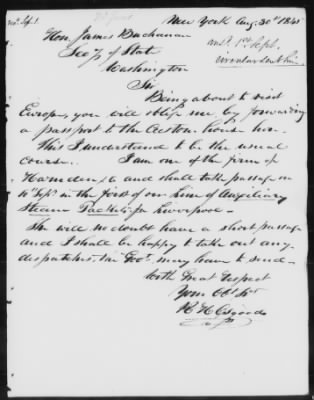 New York Aug. 30th 1845
Hon. James Buchanan
Secy of State
Washington
Sir
Being about to visit
Europe, you will oblige me by forwarding
a passport to the Custom house here.
This I understand to be the usual
course. I am one of the firm of
and shall take passage on
in the first of our Line of Auxiliary
Steam Packets for Liverpool –
She will no doubt have a short passage
and I shall be happy to take out any
dispatches the Govt may have to send –
With Great Respect
Your Obt St